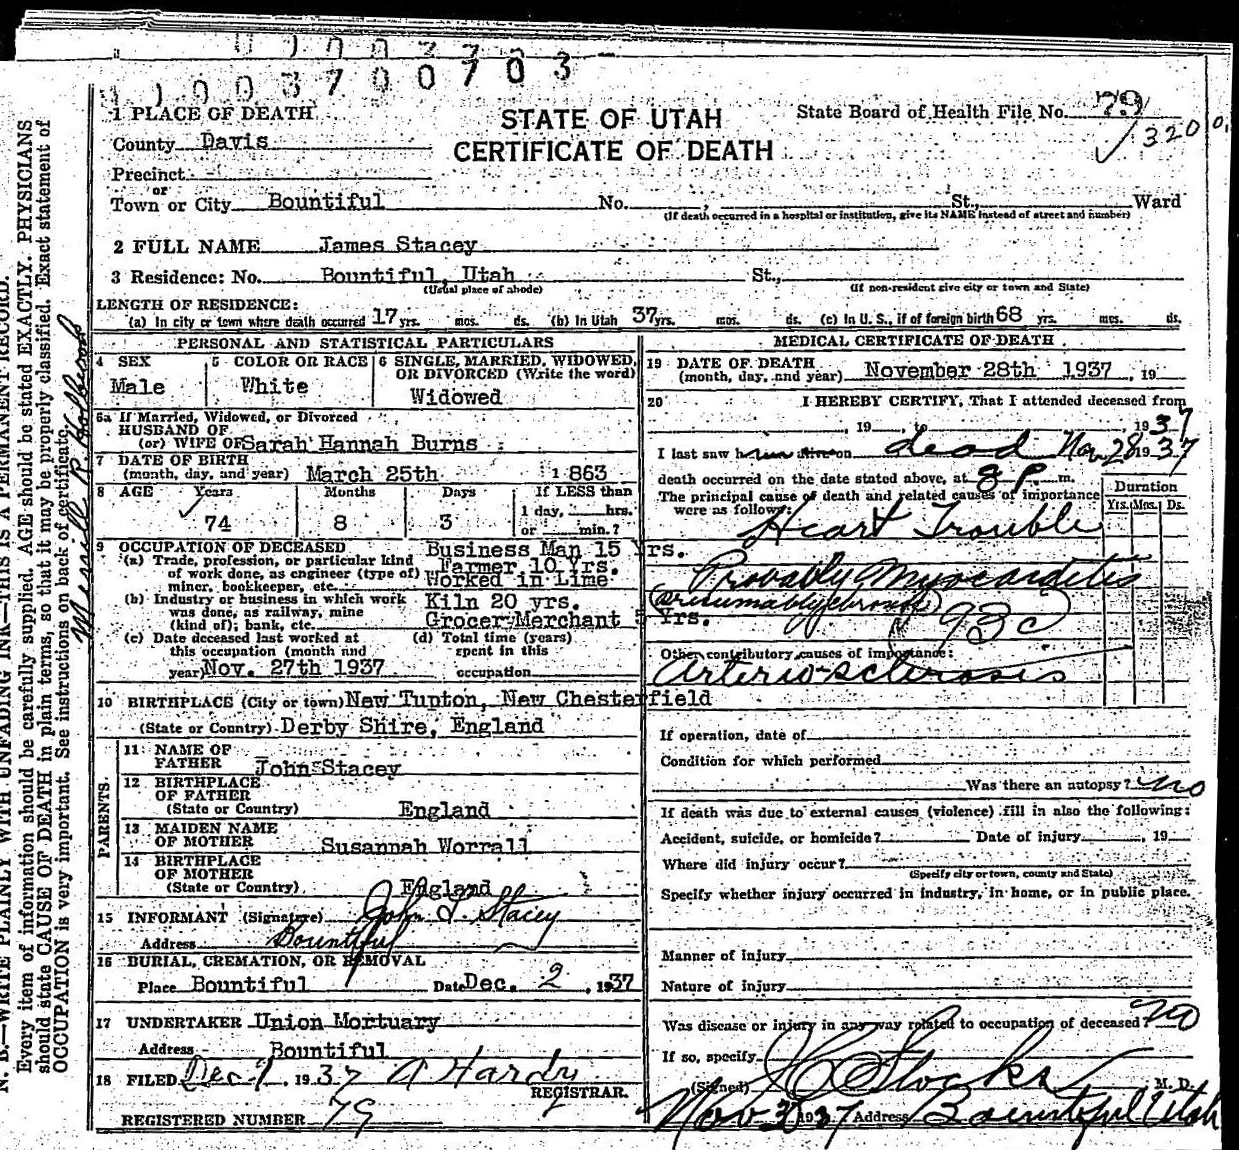 003703
1003700703
1 PLACE OF DEATH
STATE OF UTAH
CERTIFICATE OF DEATH
State Board of Health File No. 79
320
County Davis
Precinct -
or
Town or City Bountiful No. , St., Ward
(If death occurred in a hospital or institution, give its NAME instead of street and number)
2 FULL NAME James Stacey
3 Residence: No. Bountiful, Utah St.,
(Usual place of abode) (If non-resident give city or town and State)
LENGTH OF RESIDENCE:
(a) In city or town where death occurred 17 yrs. mos. ds. (b) In Utah 37 yrs. mos. ds. (c) In U. S., if of foreign birth 68 yrs. mos. ds.
PERSONAL AND STATISTICAL PARTICULARS
4 SEX
Male
5 COLOR OR RACE
White
6 SINGLE, MARRIED, WIDOWED,
OR DIVORCED (Write the word)
Widowed
6a If Married, Widowed, or Divorced
HUSBAND OF
(or) WIFE OF Sarah Hannah Burns
7 DATE OF BIRTH
(month, day, and year) March 25th 1863
8 AGE Years Months Days If LESS than
1 day, hrs.
74 8 3 or min.?
9 OCCUPATION OF DECEASED
(a) Trade, profession, or particular kind
of work done, as engineer (type of)
miner, bookkeeper, etc.
Business Man 15 Yrs.
Farmer 10 Yrs.
Worked in Lime
(b) Industry or business in which work
was done, as railway, mine
(kind of); bank, etc.
Kiln 20 yrs.
Grocer Merchant 5 Yrs.
(c) Date deceased last worked at
this occupation (month and
year) Nov. 27th 1937
(d) Total time (years)
spent in this
occupation
10 BIRTHPLACE (City or town) New Tupton, New Chesterfield
(State or Country) Derby Shire, England
PARENTS
11 NAME OF
FATHER John Stacey
12 BIRTHPLACE
OF FATHER
(State or Country) England
13 MAIDEN NAME
OF MOTHER Susannah Worrall
14 BIRTHPLACE
OF MOTHER
(State or Country) England
15 INFORMANT (Signature) John L. Stacey
Address Bountiful
16 BURIAL, CREMATION, OR REMOVAL
Place Bountiful Date Dec. 2, 1937
17 UNDERTAKER Union Mortuary
Address Bountiful
18 FILED Dec 1, 1937 A Hardy
REGISTRAR.
REGISTERED NUMBER 79
MEDICAL CERTIFICATE OF DEATH
19 DATE OF DEATH
(month, day, and year) November 28th 1937, 19
20 I HEREBY CERTIFY, That I attended deceased from
, 19 , to , 1937
I last saw him alive on dead Nov 28 1937
death occurred on the date stated above, at 8 P. m.
The principal cause of death and related causes of importance
were as follows:
Duration
Yrs. Mos. Ds.
Heart Trouble
Provably Myocarditis
(presumably chronic)
93c
Other contributory causes of importance:
Arterio-sclerosis
If operation, date of
Condition for which performed
Was there an autopsy? no
If death was due to external causes (violence) fill in also the following:
Accident, suicide, or homicide? Date of injury , 19
Where did injury occur?
(Specify city or town, county and State)
Specify whether injury occurred in industry, in home, or in public place.
Manner of injury
Nature of injury
Was disease or injury in any way related to occupation of deceased? no
If so, specify
(Signed) Stocks M. D.
Nov 30 1937 Address Bountiful Utah
N. B.—WRITE PLAINLY WITH UNFADING INK—THIS IS A PERMANENT RECORD.
Every item of information should be carefully supplied. AGE should be stated EXACTLY. PHYSICIANS
should state CAUSE OF DEATH in plain terms, so that it may be properly classified. Exact statement of
OCCUPATION is very important. See instructions on back of certificate.
Merrill R.